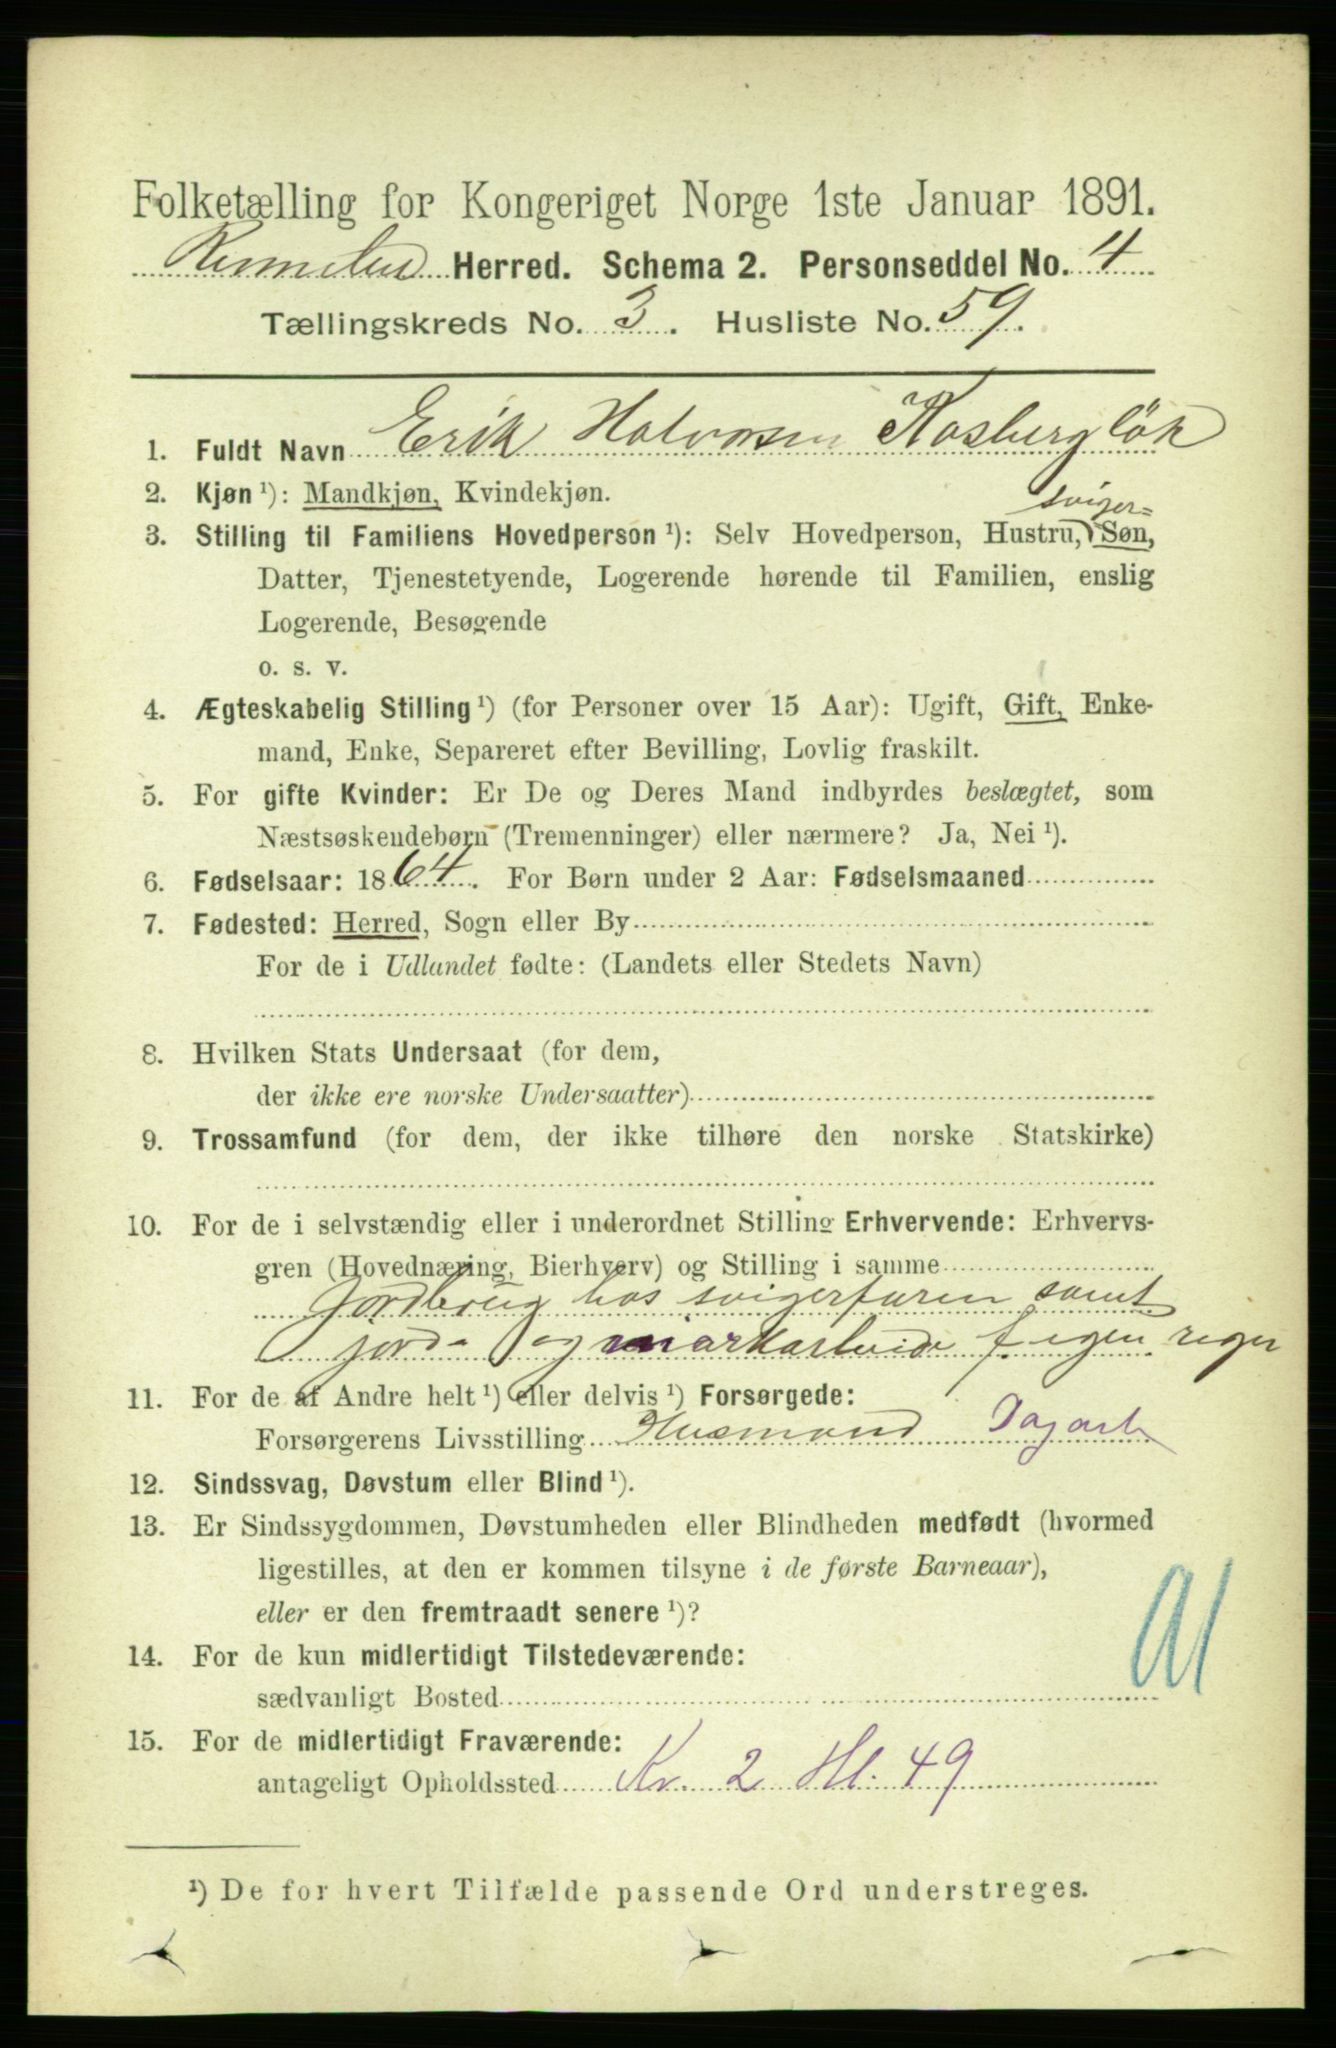 Folketælling for Kongeriget Norge 1ste Januar 1891.
Herred. Schema 2. Personseddel No. 4
Tællingskreds No. 3. Husliste No. 59.
1. Fuldt Navn Erik Halvorsen Kosbergløk
2. Kjøn ¹): Mandkjøn, Kvindekjøn.
sviger=
3. Stilling til Familiens Hovedperson ¹): Selv Hovedperson, Hustru, Søn,
Datter, Tjenestetyende, Logerende hørende til Familien, enslig
Logerende, Besøgende
o. s. v.
4. Ægteskabelig Stilling ¹) (for Personer over 15 Aar): Ugift, Gift, Enke-
mand, Enke, Separeret efter Bevilling, Lovlig fraskilt.
5. For gifte Kvinder: Er De og Deres Mand indbyrdes beslægtet, som
Næstsøskendebørn (Tremenninger) eller nærmere? Ja, Nei ¹).
6. Fødselsaar: 1864. For Børn under 2 Aar: Fødselsmaaned
7. Fødested: Herred, Sogn eller By
For de i Udlandet fødte: (Landets eller Stedets Navn)
8. Hvilken Stats Undersaat (for dem,
der ikke ere norske Undersaatter)
9. Trossamfund (for dem, der ikke tilhøre den norske Statskirke)
10. For de i selvstændig eller i underordnet Stilling Erhvervende: Erhvervs-
gren (Hovednæring, Bierhverv) og Stilling i samme
Jordbrug hos svigerfaren samt
jord- og markarbeide f. egen regn
11. For de af Andre helt ¹) eller delvis ¹) Forsørgede:
Forsørgerens Livsstilling Husmand Dagarb
12. Sindssvag, Døvstum eller Blind ¹).
13. Er Sindssygdommen, Døvstumheden eller Blindheden medfødt (hvormed
ligestilles, at den er kommen tilsyne i de første Barneaar),
eller er den fremtraadt senere ¹)?
14. For de kun midlertidigt Tilstedeværende:
sædvanligt Bosted
15. For de midlertidigt Fraværende:
antageligt Opholdssted Kr. 2 Hl. 49
¹) De for hvert Tilfælde passende Ord understreges.